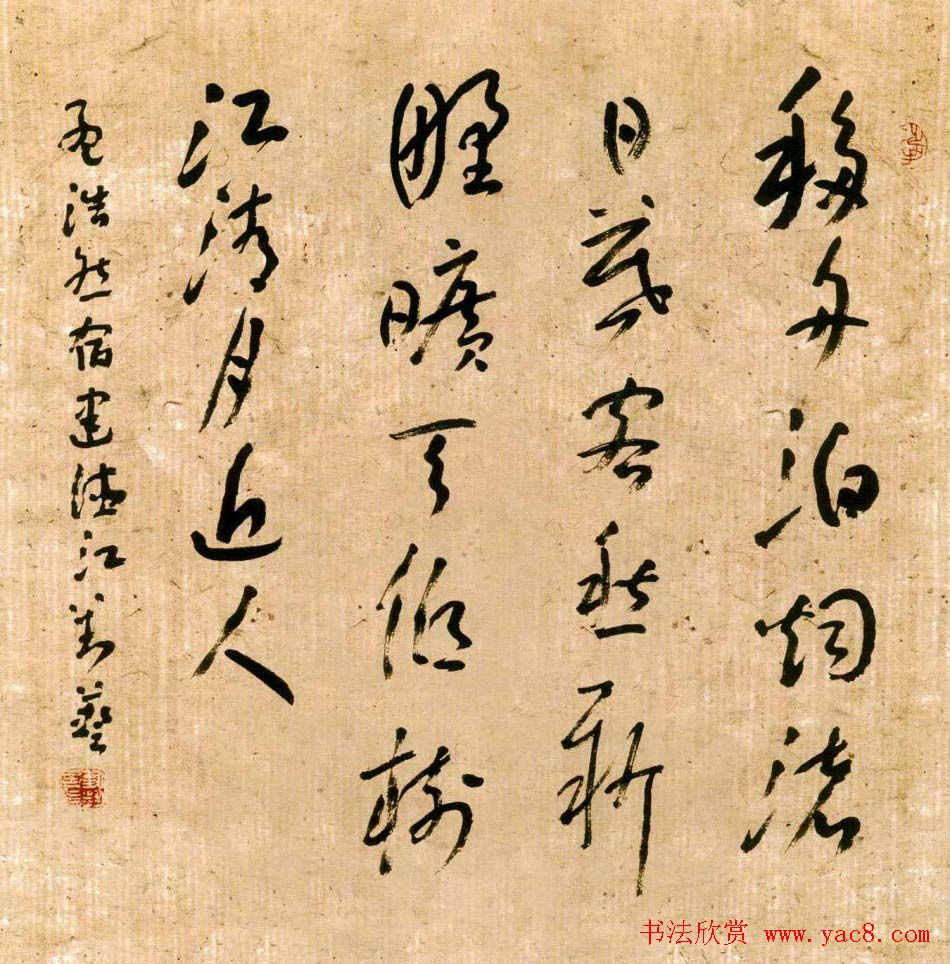 移舟泊烟渚
日暮客愁新
野旷天低树
江清月近人
孟浩然宿建德江
书法欣赏 www.yac8.com